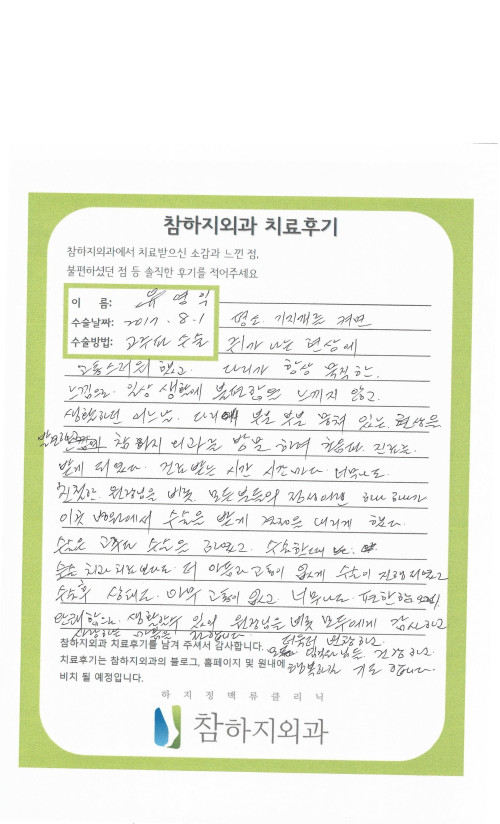 참하지외과 치료후기
참하지외과에서 치료받으신 소감과 느낀 점,
불편하셨던 점 등 솔직한 후기를 적어주세요
이 름: 유영익
수술날짜: 2017. 8. 1 평소 기지개를 켜면
수술방법: 고주파 수술 쥐가 나는 현상에
고통스러워 했고. 다리가 항상 묵직한.
느낌으로. 일상 생활에 불편함은 느끼지 않고.
생활하던 어느날. 다리에 붓은 뭉쳐 있는 현상을
발견하고 참하지 외과를 방문 하여 처음으로 진료를
받게 되었다. 진료 받는 시간 시간마다. 너무나도
친절한. 원장님을 비롯. 모든분들의 하나 하나가
이곳 병원에서 수술을 받게 결정을 내리게 했다.
수술은 고주파 수술을 하였고. 수술할때
치과 치료보다도 더 아픔과 고통이 없게 수술이 진행되었고
수술후 상태도. 아무 고통이 없고. 너무나도 편안함
생활할수 있어 원장님을 비롯 모두에게 감사하고
사랑하는 마음을 전합니다. 더욱더 번창하고
참하지외과 치료후기를 남겨 주셔서 감사합니다. 건강하고
치료후기는 참하지외과의 블로그, 홈페이지 및 원내에 행복하길 기도 합니다.
비치 될 예정입니다.
하지정맥류클리닉
참하지외과